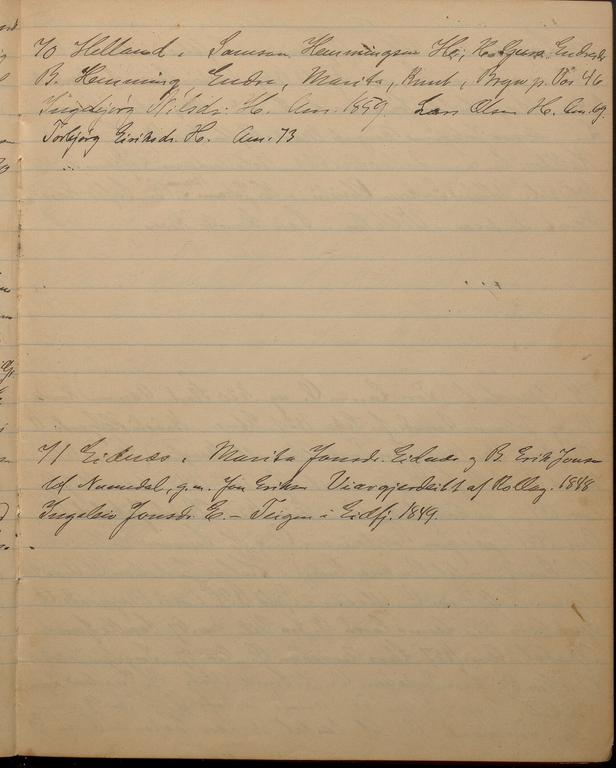 70 Helland. Samson Henningsen He; H. Gjura Endresdr
B. Henning Endre, Marita, Knut, Brynj. p. Vos 46
Ingebjørg Nilsdr. H. Am. 1859. Lars Olsen H. Am. 69.
Torbjørg Eiriksdr. H. Am. 73
71 Eidnæs. Marita Jonsdr. Eidnæs og B. Erik Jonsen
td Numedal, g.m. Jon Eriksen af Kolleg. 1848
Ingeleiv Jonsdr. E. – Teigen i Eidfj. 1849.